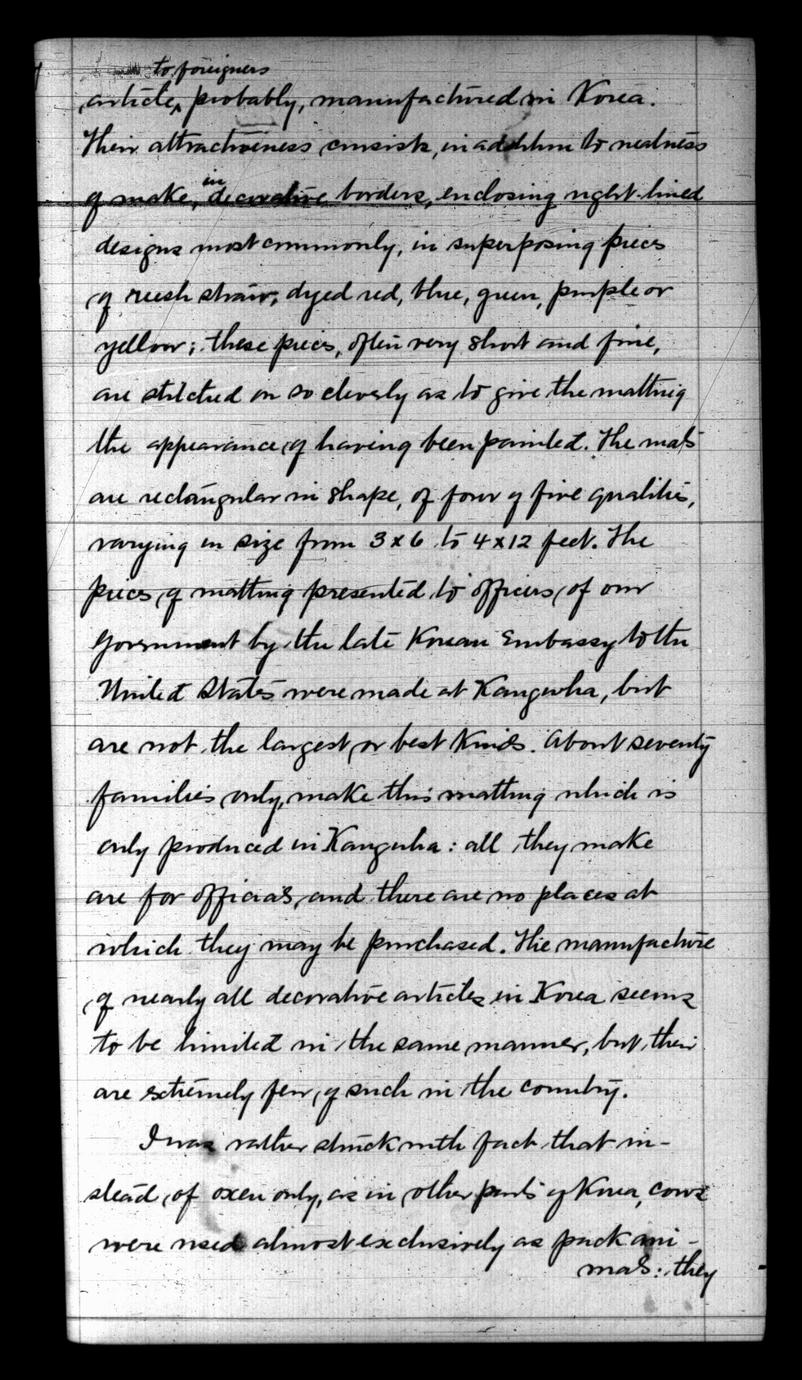 to foreigners
article, probably, manufactured in Korea.
Their attractiveness consists, in addition to neatness
of make, in decorative borders, enclosing right-lined
designs most commonly, in superposing pieces
of rush straw, dyed red, blue, green, purple or
yellow; these pieces, often very short and fine,
are stitched on so cleverly as to give the matting
the appearance of having been painted. The mats
are rectangular in shape, of four or five qualities,
varying in size from 3x6 to 4x12 feet. The
pieces of matting presented to officers of our
Government by the late Korean Embassy to the
United States were made at Kangwha, but
are not the largest or best kinds. About seventy
families, only, make this matting which is
only produced in Kangwha: all they make
are for officials, and there are no places at
which they may be purchased. The manufacture
of nearly all decorative articles in Korea seems
to be limited in the same manner, but their
are extremely few of such in the country.
I was rather struck with fact that in-
stead of oxen only, as in other parts of Korea, cows
were used almost exclusively as pack ani-
mals: they